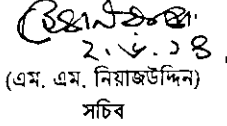 ২.৬.১৪
(এম. এম. নিয়াজউদ্দিন)
সচিব